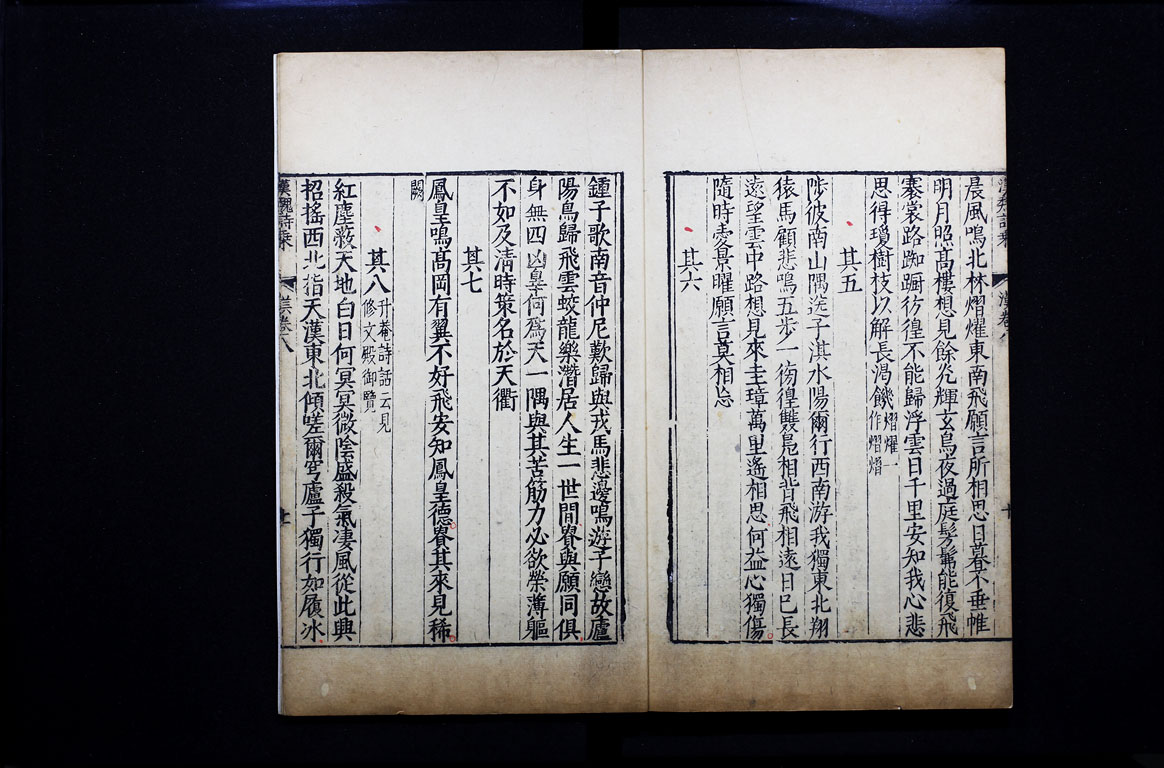 晨風鳴北林熠燿東南飛願言所相思日暮不垂帷
明月照高樓想見餘光輝玄鳥夜過庭髣髴能復飛
褰裳路踟蹰彷徨不能歸浮雲日千里安知我心悲
思得瓊樹枝以解長渴饑熠燿一作熠熠
其五
陟彼南山隅送子淇水陽爾行西南游我獨東北翔
轅馬顧悲鳴五步一彷徨雙鳧相背飛相遠日已長
遠望雲中路想見來圭璋萬里遙相思何益心獨傷
隨時愛景曜願言莫相忘
其六
鍾子歌南音仲尼歎歸與戎馬悲邊鳴游子戀故廬
陽鳥歸飛雲蛟龍樂潛居人生一世間貴與願同俱
身無四凶辠何爲天一隅與其苦筋力必欲榮薄軀
不如及清時策名於天衢
其七
鳳皇鳴高岡有翼不好飛安知鳳皇德貴其來見稀
闕
其八升菴詩話云見修文殿御覽
紅塵蔽天地白日何冥冥微陰盛殺氣淒風從此興
招搖西北指天漢東北傾嗟爾穹廬子獨行如履冰
漢魏詩乘
漢卷八
十一